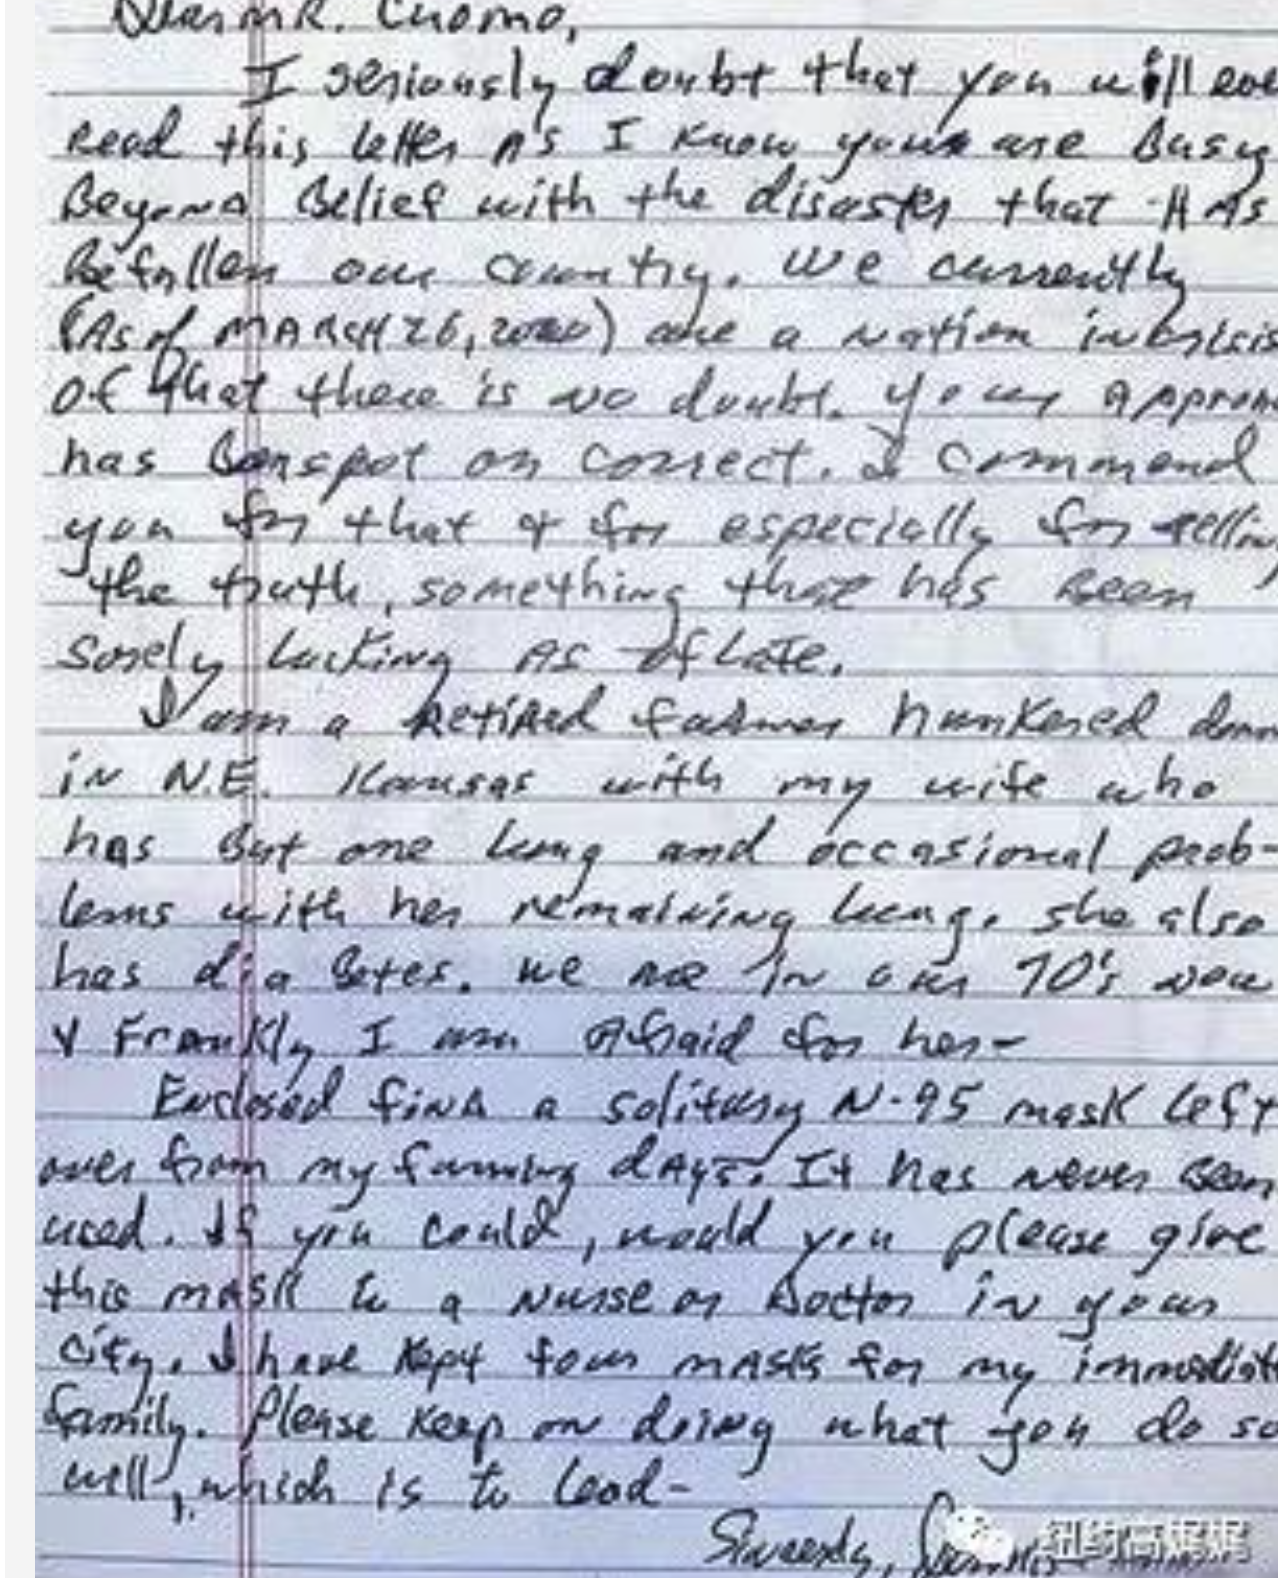 Dear MR. Cuomo,
I seriously doubt that you will eve
Read this letter As I know your are Busy
Beyond Belief with the disaster that HAs
Befallen our country. We currently
(As of MARCH 26, 2020) are a nation in crisis
of that there is no doubt. Your Approa
has Been spot on correct. I commend
you for that & for especially for telling
the truth, something that has Been
sorely lacking As of Late.
I am a Retired farmer hunkered down
in N.E. Kansas with my wife who
has But one lung and occasional prob-
lems with her remaining lung. She also
has diaBetes. We are In our 70's now
& Frankly I am Afraid for her-
Enclosed find a solitary N-95 mask left
over from my farming dAys. It has never Been
used. If you could, would you please give
this mask to a Nurse or Doctor in your
City. I have kept four mAsks for my immediate
family. Please keep on doing what you do so
well, which is to lead-
Sincerely,
纽约高娓娓